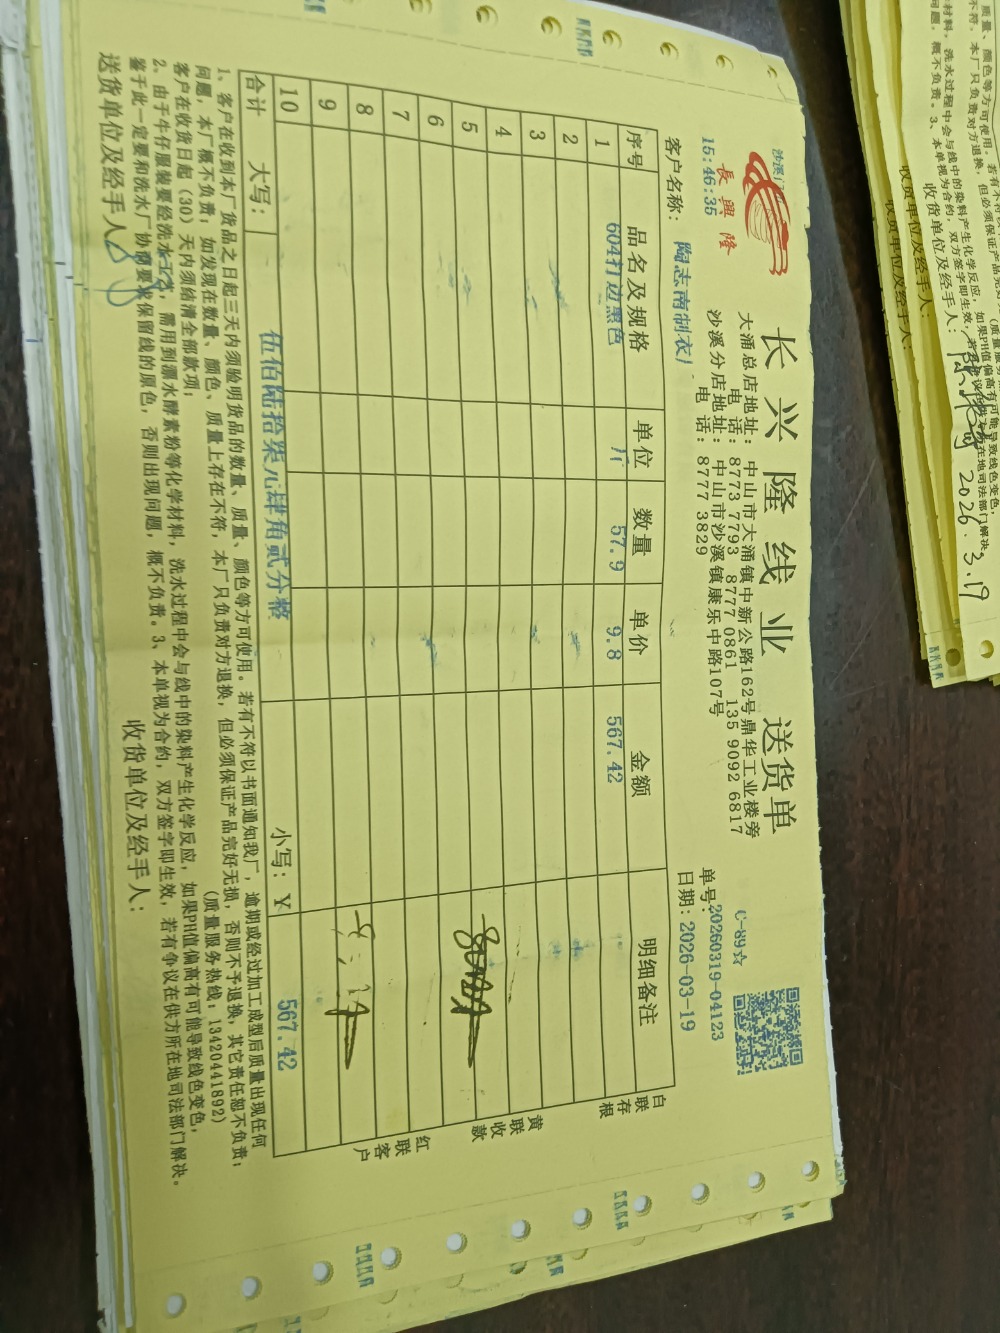 长兴隆线业 送货单
長興隆
C-89☆
大涌总店地址：中山市大涌镇中新公路162号鼎华工业楼旁
电 话：8773 7793 8777 0861 135 9092 6817
沙溪分店地址：中山市沙溪镇康乐中路107号
电 话：8777 3829
15:46:35
单号：20260319-04123
客户名称：陶志南制衣厂
日期：2026-03-19
序号 品名及规格 单位 数量 单价 金额 明细备注
1 604打边黑色 斤 57.9 9.8 567.42
2
3
4
5
6
7
8
9
10
合计 大写： 伍佰陆拾柒元肆角贰分整 小写：￥ 567.42
白联存根
黄联收款
红联客户
1、客户在收到本厂货品之日起三天内须验明货品的数量、质量、颜色等方可使用。若有不符以书面通知我厂，逾期或经过加工成型后质量出现任何
问题，本厂概不负责；如发现在数量、颜色、质量上存在不符，本厂只负责对方退换，但必须保证产品完好无损，否则不予退换，其它责任恕不负责；
客户在收货日起（30）天内须结清全部款项； （质量服务热线：13420441892）
2、由于牛仔服装要经洗水工艺，需用到漂水酵素粉等化学材料，洗水过程中会与线中的染料产生化学反应，如果PH值偏高有可能导致线色变色，
鉴于此一定要和洗水厂协商要求保留线的原色，否则出现问题，概不负责。3、本单视为合约，双方签字即生效，若有争议在供方所在地司法部门解决。
送货单位及经手人：
收货单位及经手人：
收货单位及经手人：
收货单位及经手人：
收货单位及经手人：
2026.3.19